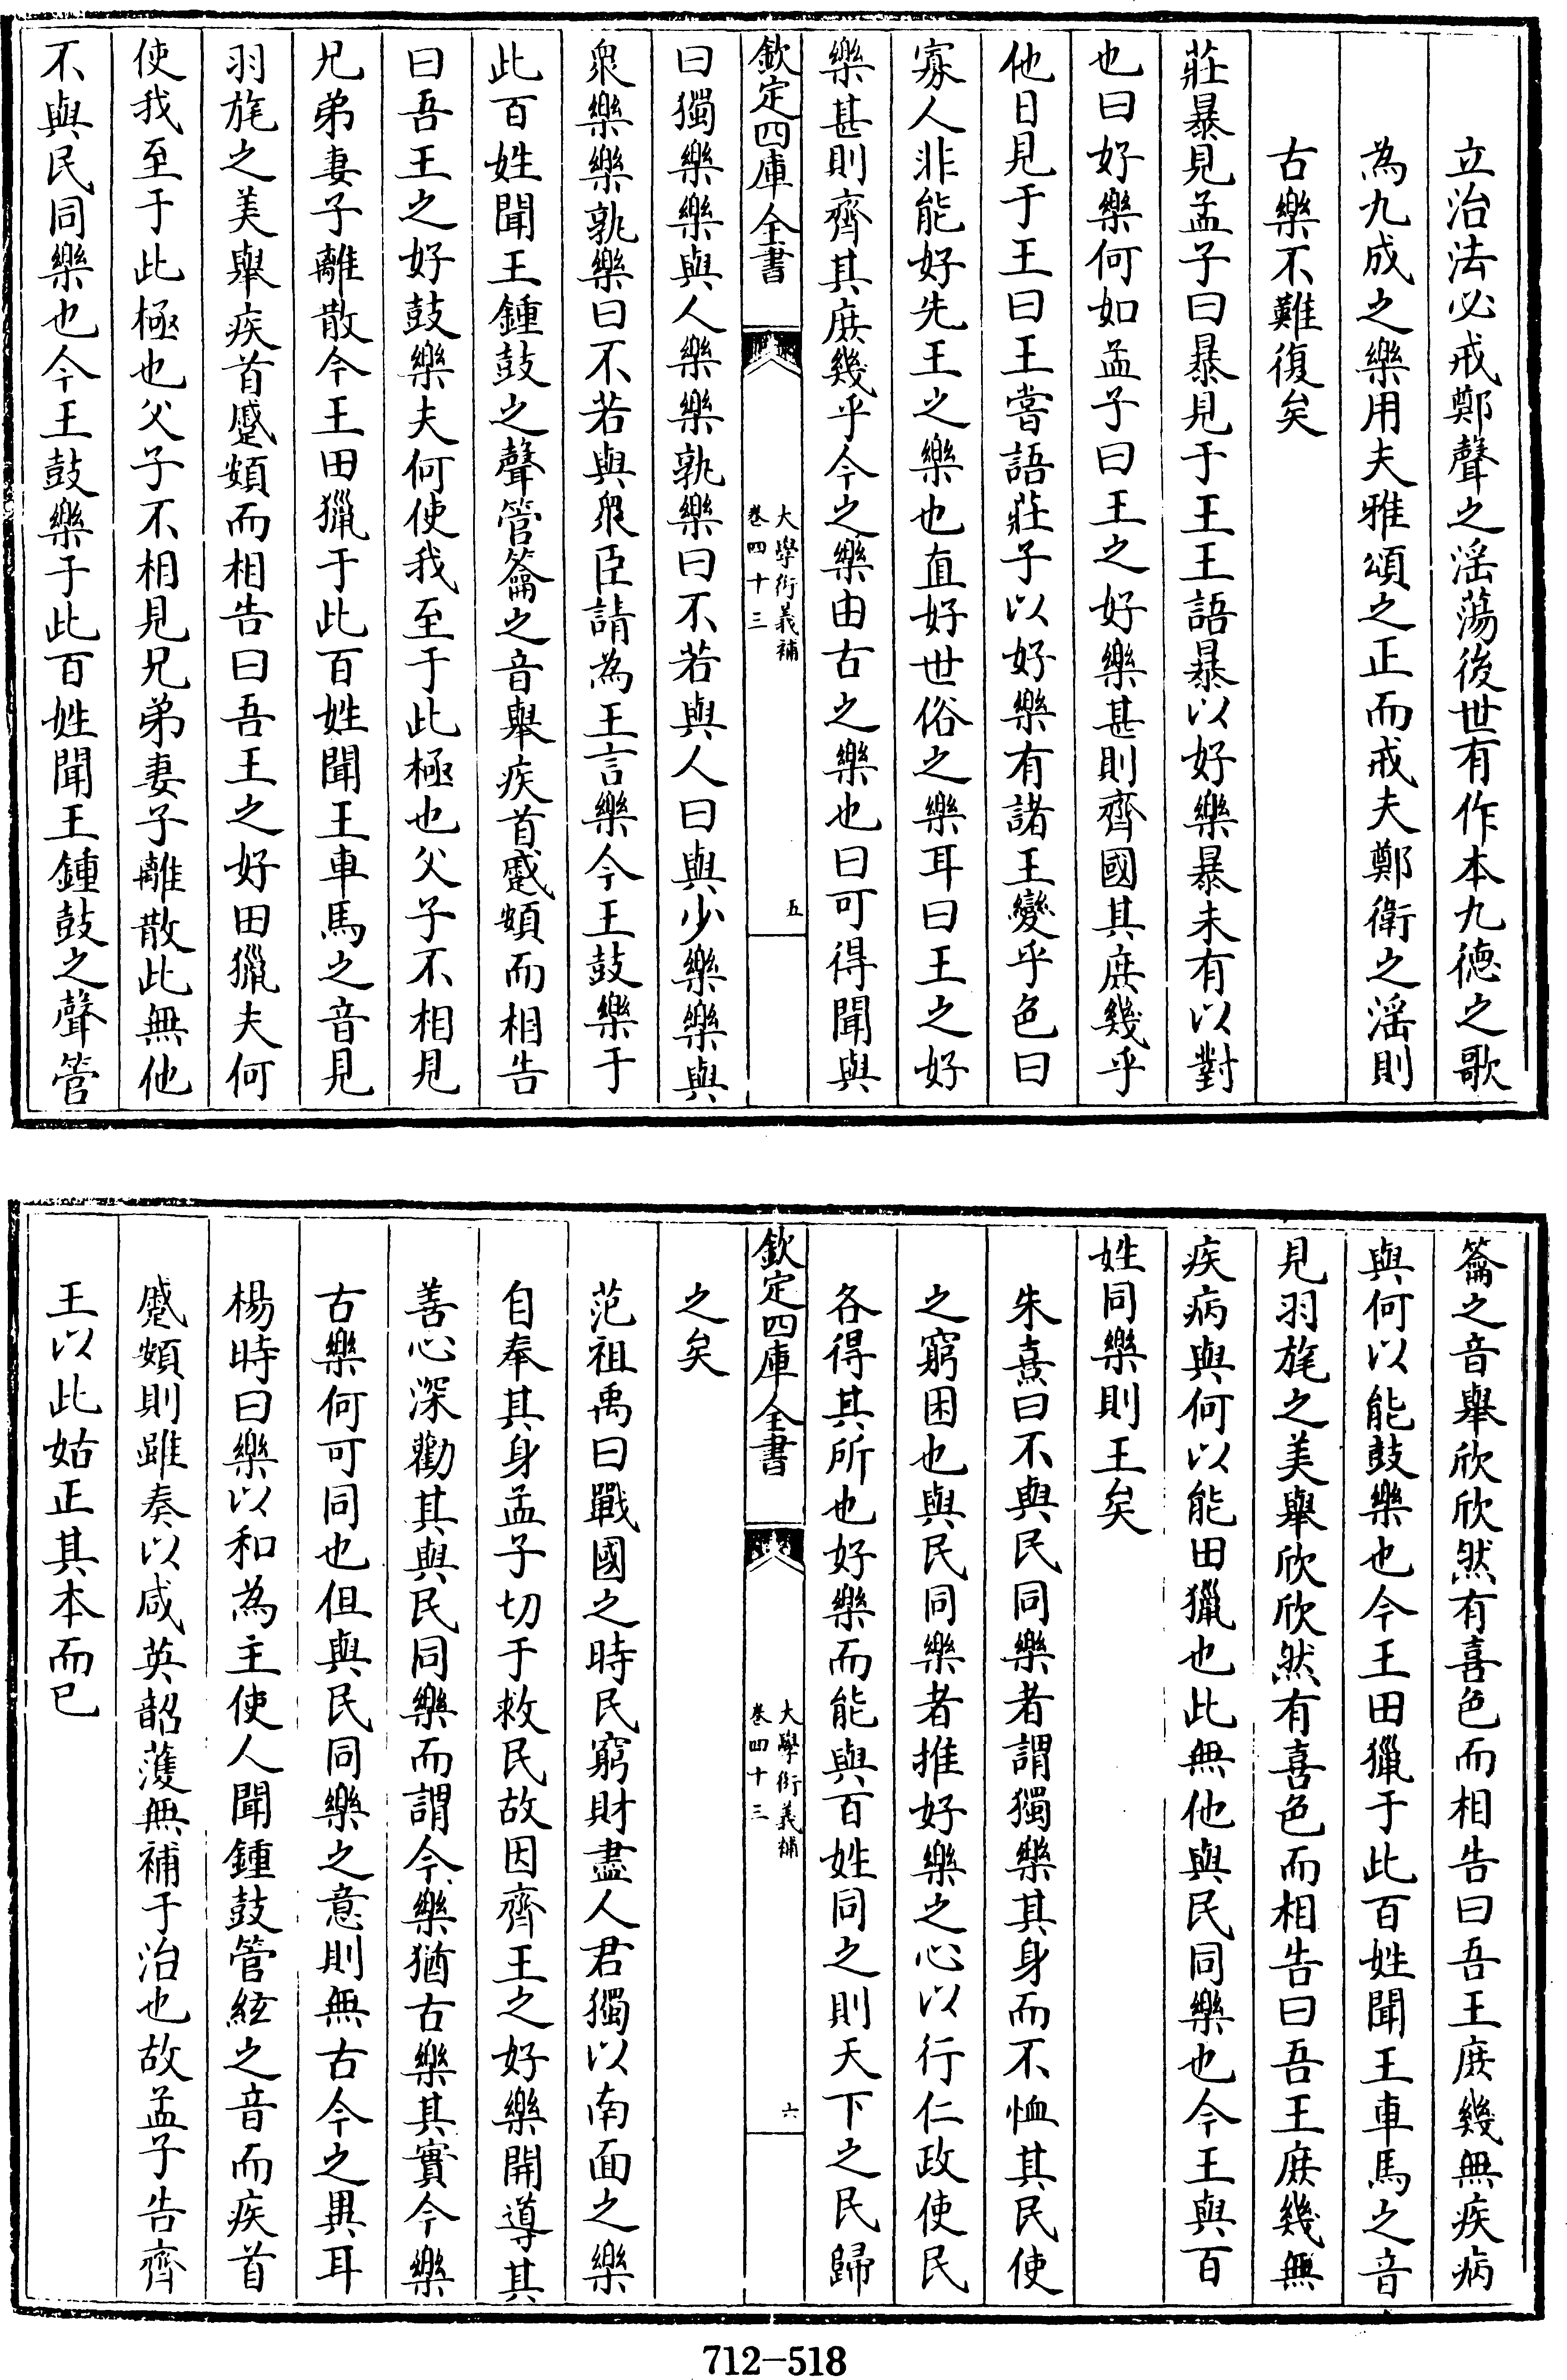 立治法必戒鄭聲之淫蕩後世有作本九德之歌
為九成之樂用夫雅頌之正而戒夫鄭衛之淫則
古樂不難復矣
莊暴見孟子曰暴見于王王語暴以好樂暴未有以對
也曰好樂何如孟子曰王之好樂甚則齊國其庶幾乎
他日見于王曰王嘗語莊子以好樂有諸王變乎色曰
寡人非能好先王之樂也直好世俗之樂耳曰王之好
樂甚則齊其庶幾乎今之樂由古之樂也曰可得聞與
欽定四庫全書
大學衍義補
卷四十三
五
曰獨樂樂與人樂樂孰樂曰不若與人曰與少樂樂與
衆樂樂孰樂曰不若與衆臣請為王言樂今王鼓樂于
此百姓聞王鍾鼓之聲管籥之音舉疾首蹙頞而相告
曰吾王之好鼓樂夫何使我至于此極也父子不相見
兄弟妻子離散今王田獵于此百姓聞王車馬之音見
羽旄之美舉疾首蹙頞而相告曰吾王之好田獵夫何
使我至于此極也父子不相見兄弟妻子離散此無他
不與民同樂也今王鼓樂于此百姓聞王鍾鼓之聲管
籥之音舉欣欣然有喜色而相告曰吾王庶幾無疾病
與何以能鼓樂也今王田獵于此百姓聞王車馬之音
見羽旄之美舉欣欣然有喜色而相告曰吾王庶幾無
疾病與何以能田獵也此無他與民同樂也今王與百
姓同樂則王矣
朱熹曰不與民同樂者謂獨樂其身而不恤其民使
之窮困也與民同樂者推好樂之心以行仁政使民
各得其所也好樂而能與百姓同之則天下之民歸
欽定四庫全書
大學衍義補
卷四十三
六
之矣
范祖禹曰戰國之時民窮財盡人君獨以南面之樂
自奉其身孟子切于救民故因齊王之好樂開導其
善心深勸其與民同樂而謂今樂猶古樂其實今樂
古樂何可同也但與民同樂之意則無古今之異耳
楊時曰樂以和為主使人聞鍾鼓管絃之音而疾首
蹙頞則雖奏以咸英韶濩無補于治也故孟子告齊
王以此姑正其本而已
712-518